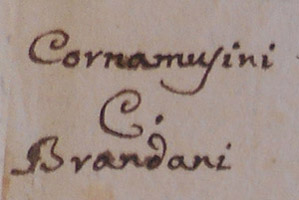 Cornamusini
C.
Brandani